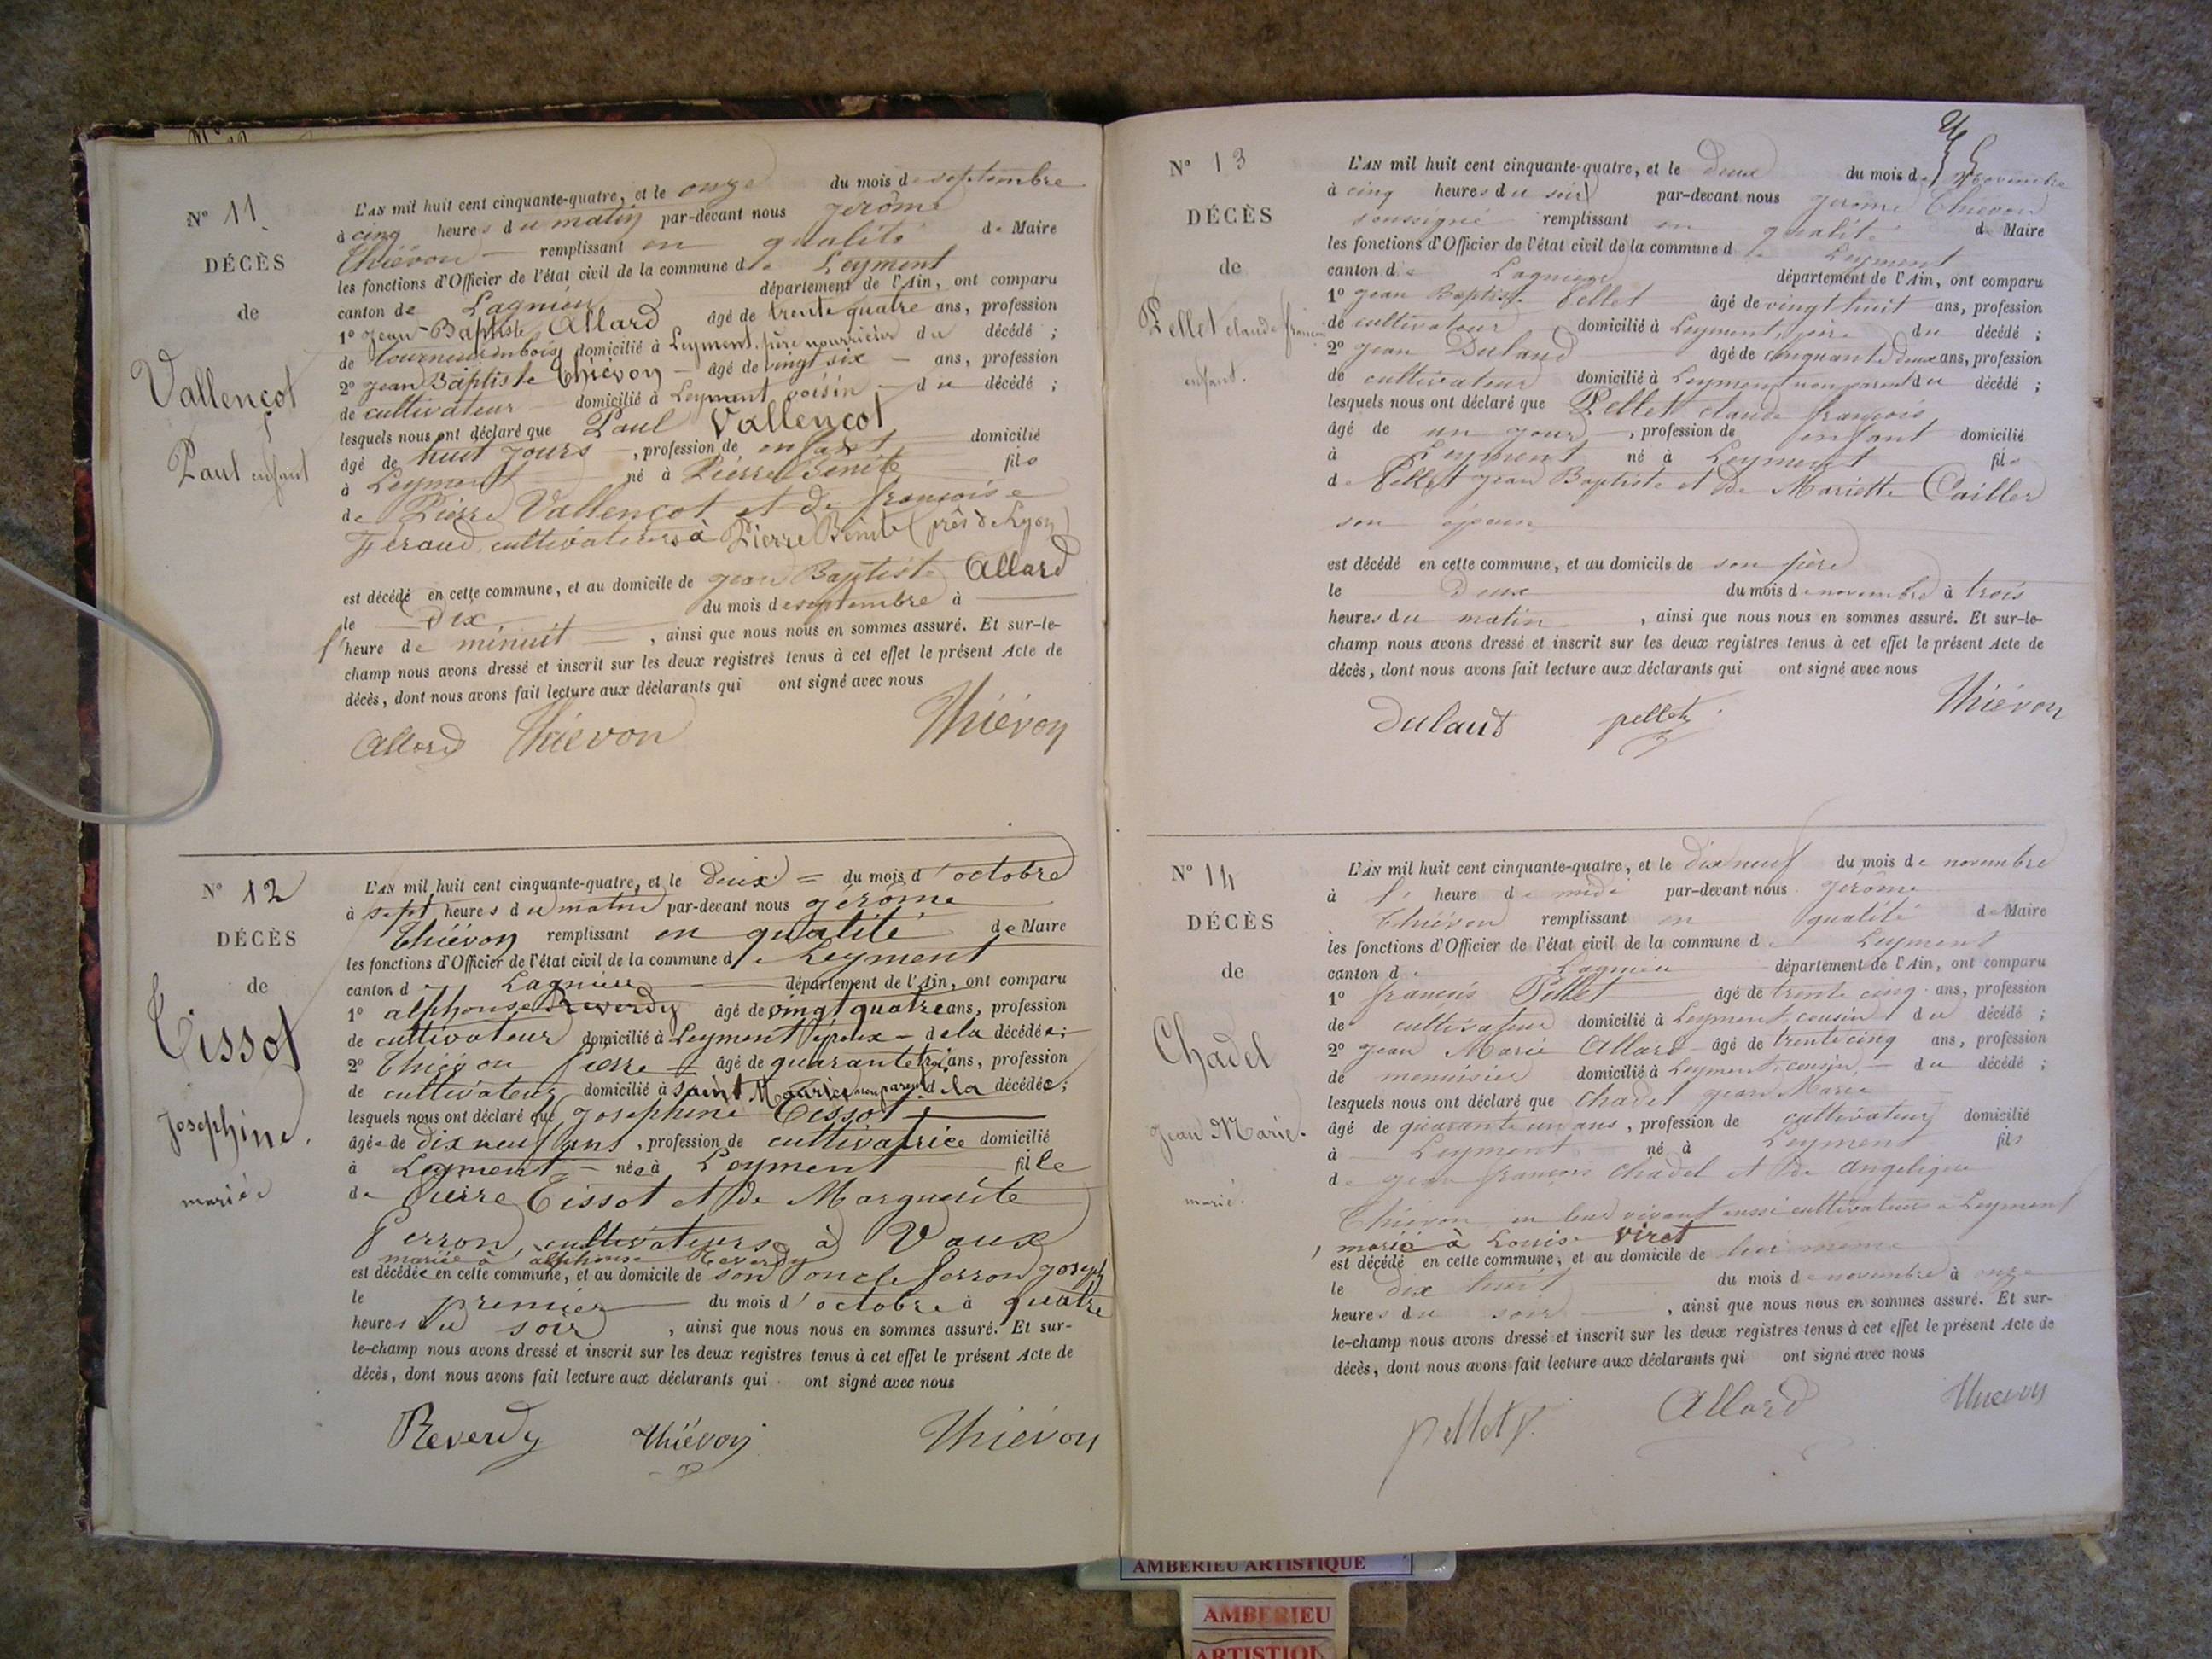 N° 11
DÉCÈS
de
Vallencot
Paul enfant
L'AN mil huit cent cinquante-quatre, et le onze du mois de septembre
à cinq heures du matin par-devant nous jerôme
Thiévon remplissant en qualité de Maire
les fonctions d'Officier de l'état civil de la commune de Leyment
canton de Lagnieu département de l'Ain, ont comparu
1° jean-Baptiste Allard âgé de trente quatre ans, profession
de tourneurenbois domicilié à Leyment, père nourricier du décédé ;
2° jean Baptiste Thiévon âgé de vingt six ans, profession
de cultivateur domicilié à Leyment voisin du décédé ;
lesquels nous ont déclaré que Paul Vallencot
âgé de huit jours, profession de enfant domicilié
à Leyment né à Pierre Bénite fils
de Pierre Vallencot et de françoise
feraud, cultivateurs à Pierre Bénite (près de Lyon)
est décédé en cette commune, et au domicile de jean Baptiste Allard
le Dix du mois de septembre à
l'heure de minuit, ainsi que nous nous en sommes assuré. Et sur-le-
champ nous avons dressé et inscrit sur les deux registres tenus à cet effet le présent Acte de
décès, dont nous avons fait lecture aux déclarants qui ont signé avec nous
Allard Thiévon Thiévon
N° 12
DÉCÈS
de
Tissot
Josephine,
mariée
L'AN mil huit cent cinquante-quatre, et le deux = du mois d'octobre
à sept heures du matin par-devant nous jérôme
Thiévon remplissant en qualité de Maire
les fonctions d'Officier de l'état civil de la commune de Leyment
canton de Lagnieu département de l'Ain, ont comparu
1° alphonse Reverdy âgé de vingt quatre ans, profession
de cultivateur domicilié à Leyment époux de la décédée;
2° Thiévon pierre âgé de quarante trois ans, profession
de cultivateur domicilié à saint Maurice non parent de la décédée;
lesquels nous ont déclaré que Josephine Tissot
âgée de dix neuf ans, profession de cultivatrice domicilié
à Leyment née à Leyment fille
de Pierre Tissot et de Marguerite
Perron, cultivateurs à Vaux
mariée à alphonse Reverdy
est décédée en cette commune, et au domicile de son oncle ferron joseph
le premier du mois d'octobre à quatre
heures du soir, ainsi que nous nous en sommes assuré. Et sur-
le-champ nous avons dressé et inscrit sur les deux registres tenus à cet effet le présent Acte de
décès, dont nous avons fait lecture aux déclarants qui ont signé avec nous
Reverdy Thiévon Thiévon
N° 13
DÉCÈS
de
Pellet claude françois
enfant.
L'AN mil huit cent cinquante-quatre, et le deux du mois de Novembre
à cinq heures du soir par-devant nous jerôme Thiévon
soussigné remplissant en qualité de Maire
les fonctions d'Officier de l'état civil de la commune de Leyment
canton de Lagnieu département de l'Ain, ont comparu
1° jean Baptiste Pellet âgé de vingt huit ans, profession
de cultivateur domicilié à Leyment, père du décédé ;
2° jean Dulaud âgé de cinquante deux ans, profession
de cultivateur domicilié à Leyment non parent du décédé ;
lesquels nous ont déclaré que Pellet claude françois
âgé de un jour, profession de enfant domicilié
à Leyment né à Leyment fils
de Pellet jean Baptiste et de Mariette Cailler
son épouse
est décédé en cette commune, et au domicile de son père
le Deux du mois de novembre à trois
heures du matin, ainsi que nous nous en sommes assuré. Et sur-le-
champ nous avons dressé et inscrit sur les deux registres tenus à cet effet le présent Acte de
décès, dont nous avons fait lecture aux déclarants qui ont signé avec nous
Dulaud pellet Thiévon
N° 14
DÉCÈS
de
Chadel
jean Marie.
marié.
L'AN mil huit cent cinquante-quatre, et le dix neuf du mois de novembre
à l' heure de midi par-devant nous jerôme
Thiévon remplissant en qualité de Maire
les fonctions d'Officier de l'état civil de la commune de Leyment
canton de Lagnieu département de l'Ain, ont comparu
1° françois Pellet âgé de trente cinq ans, profession
de cultivateur domicilié à Leyment, cousin du décédé ;
2° jean Marie Allard âgé de trente cinq ans, profession
de menuisier domicilié à Leyment, cousin du décédé ;
lesquels nous ont déclaré que Chadel jean Marie
âgé de quarante un ans, profession de cultivateur domicilié
à Leyment né à Leyment fils
de jean françois Chadel et de angelique
Thiévon en leur vivant aussi cultivateurs à Leyment
, marié à Louise Viret
est décédé en cette commune, et au domicile de lui même
le dix huit du mois de novembre à onze
heures du soir, ainsi que nous nous en sommes assuré. Et sur-
le-champ nous avons dressé et inscrit sur les deux registres tenus à cet effet le présent Acte de
décès, dont nous avons fait lecture aux déclarants qui ont signé avec nous
pellet f. Allard Thiévon
AMBERIEU ARTISTIQUE
AMBERIEU
ARTISTIQU